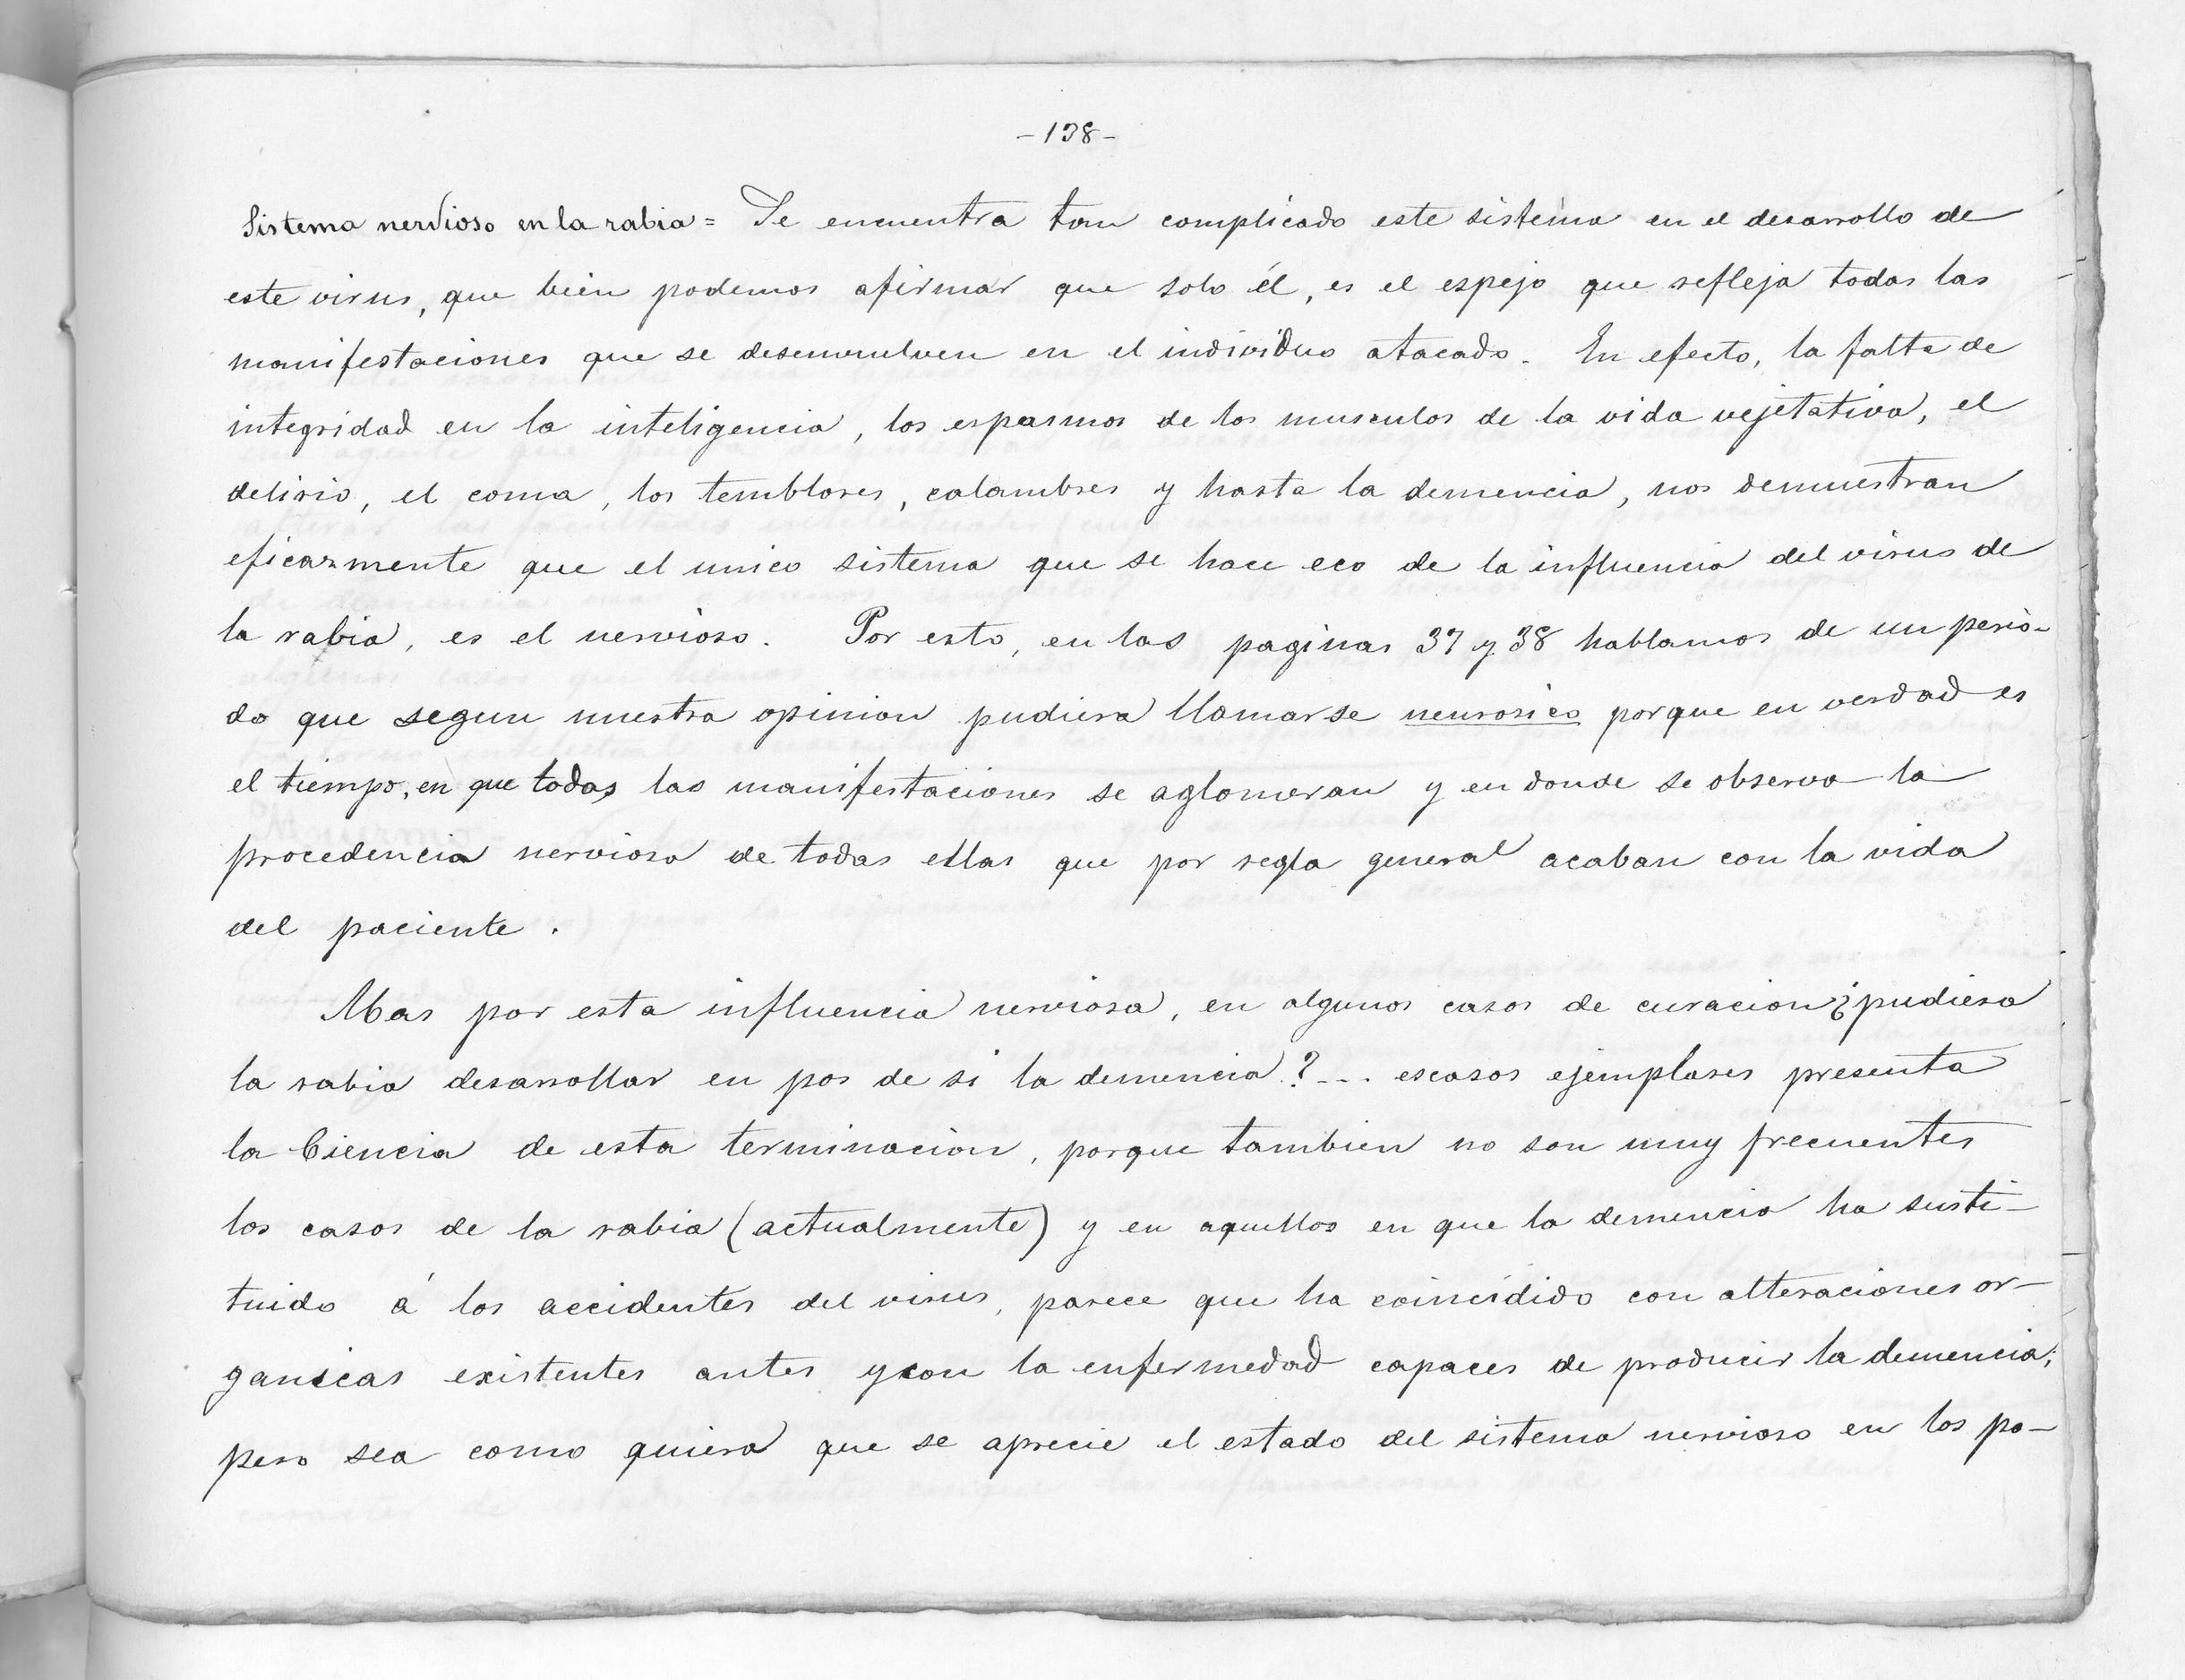 -138-
Sistema nervioso en la rabia = Se encuentra tan complicado este sistema en el desarrollo de
este virus, que bien podemos afirmar que solo él, es el espejo que refleja todas las
manifestaciones que se desenvuelven en el individuo atacado. En efecto, la falta de
integridad en la inteligencia, los espasmos de los musculos de la vida vejetativa, el
delirio, el coma, los temblores, calambres y hasta la demencia, nos demuestran
eficazmente que el unico sistema que se hace eco de la influencia del virus de
la rabia, es el nervioso. Por esto, en las paginas 37 y 38 hablamos de un perio-
do que segun nuestra opinion pudiera llamarse neurosico porque en verdad es
el tiempo, en que todas las manifestaciones se aglomeran y en donde se observa la
procedencia nerviosa de todas ellas que por regla general acaban con la vida
del paciente.
Mas por esta influencia nerviosa, en algunos casos de curacion ¿pudiera
la rabia desarrollar en pos de si la demencia?... escasos ejemplares presenta
la Ciencia de esta terminacion, porque tambien no son muy frecuentes
los casos de la rabia (actualmente) y en aquellos en que la demencia ha susti-
tuido á los accidentes del virus, parece que ha coincidido con alteraciones or-
ganicas existentes antes y con la enfermedad capaces de producir la demencia;
pero sea como quiera que se aprecie el estado del sistema nervioso en los pa-